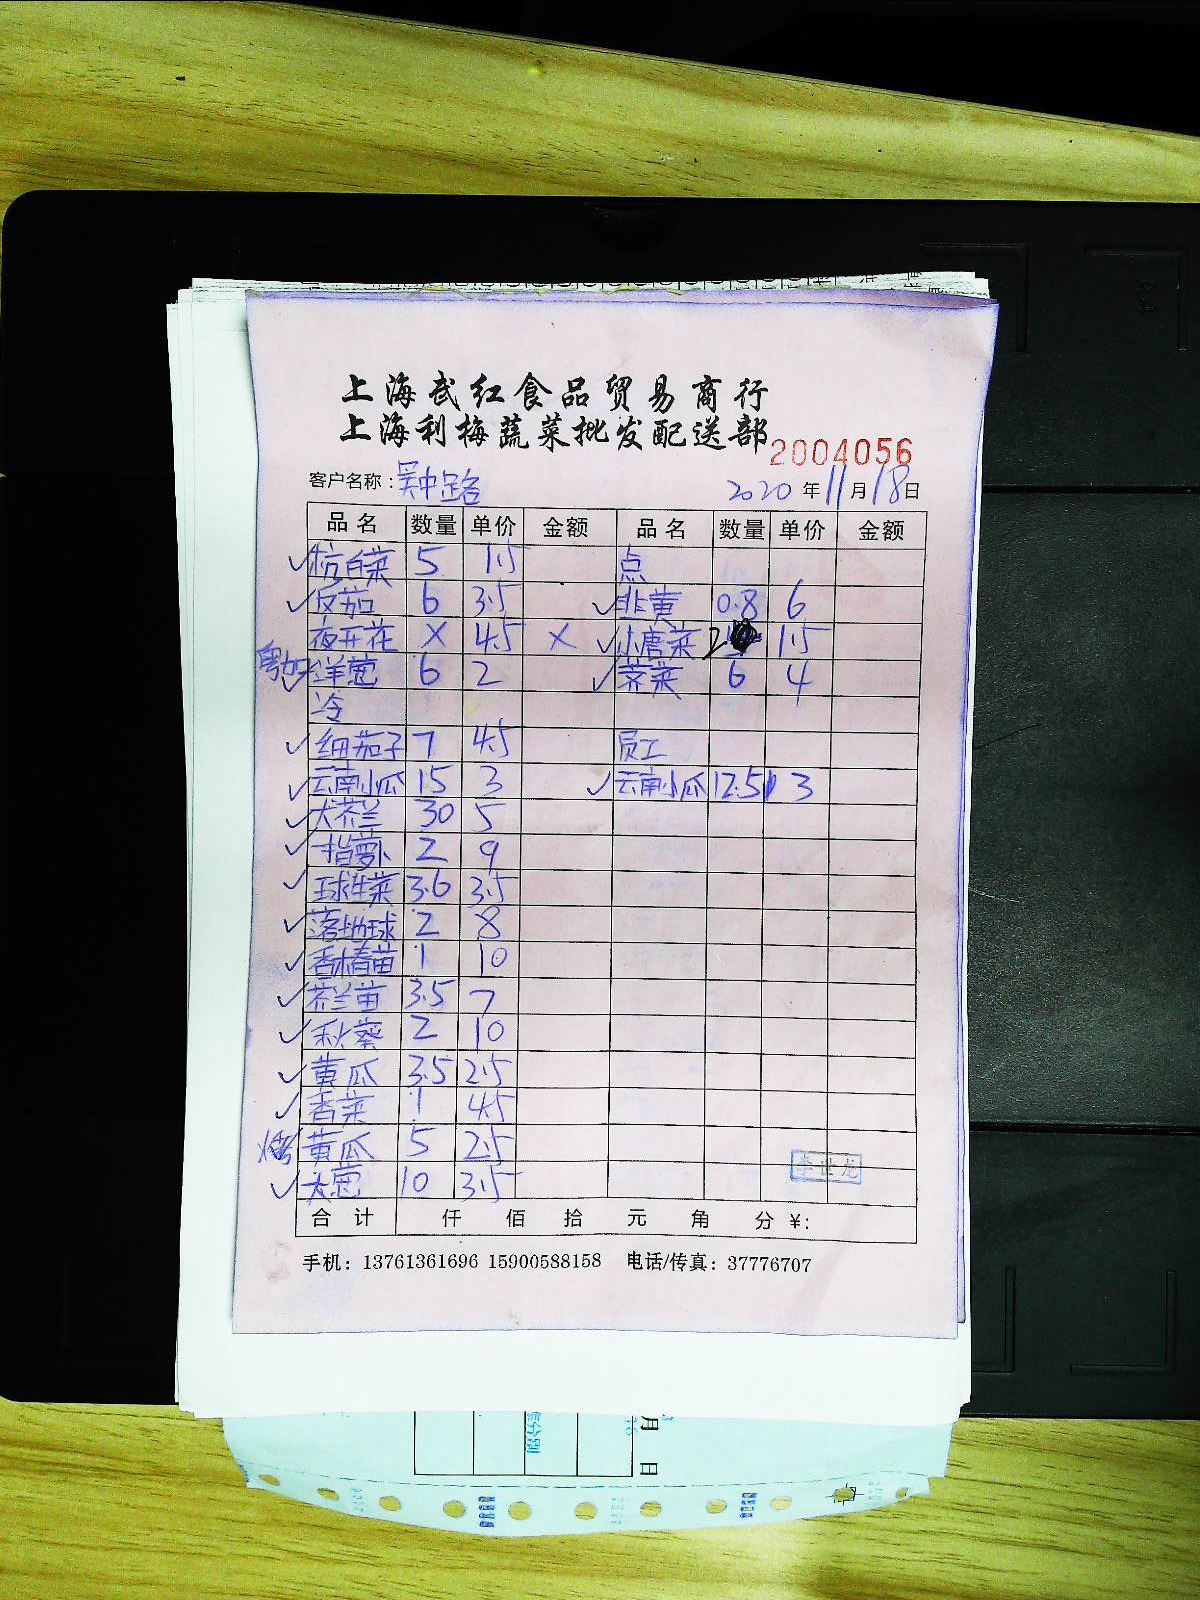 上海武红食品贸易商行
上海利梅蔬菜批发配送部
2004056
客户名称：吴中路 2020年11月18日
品名 数量 单价 金额 品名 数量 单价 金额
✓杭白菜 5 1.5 点
✓反茄 6 3.5 ✓韭黄 0.8 6
夜开花 × 4.5 × ✓小唐菜 2 1.5
✓洋葱 6 2 ✓荠菜 6 4
冷
✓细茄子 7 4.5 员工
✓云南小瓜 15 3 ✓云南小瓜 12.5 3
✓大芥兰 30 5
✓指萝卜 2 9
✓球生菜 3.6 3.5
✓落地球 2 8
✓香椿苗 1 10
✓芥兰苗 3.5 7
✓秋葵 2 10
✓黄瓜 3.5 2.5
✓香菜 1 4.5
烤 黄瓜 5 2.5
✓大葱 10 3.5
李世龙
合计 仟 佰 拾 元 角 分 ¥:
手机：13761361696 15900588158 电话/传真：37776707
月 日